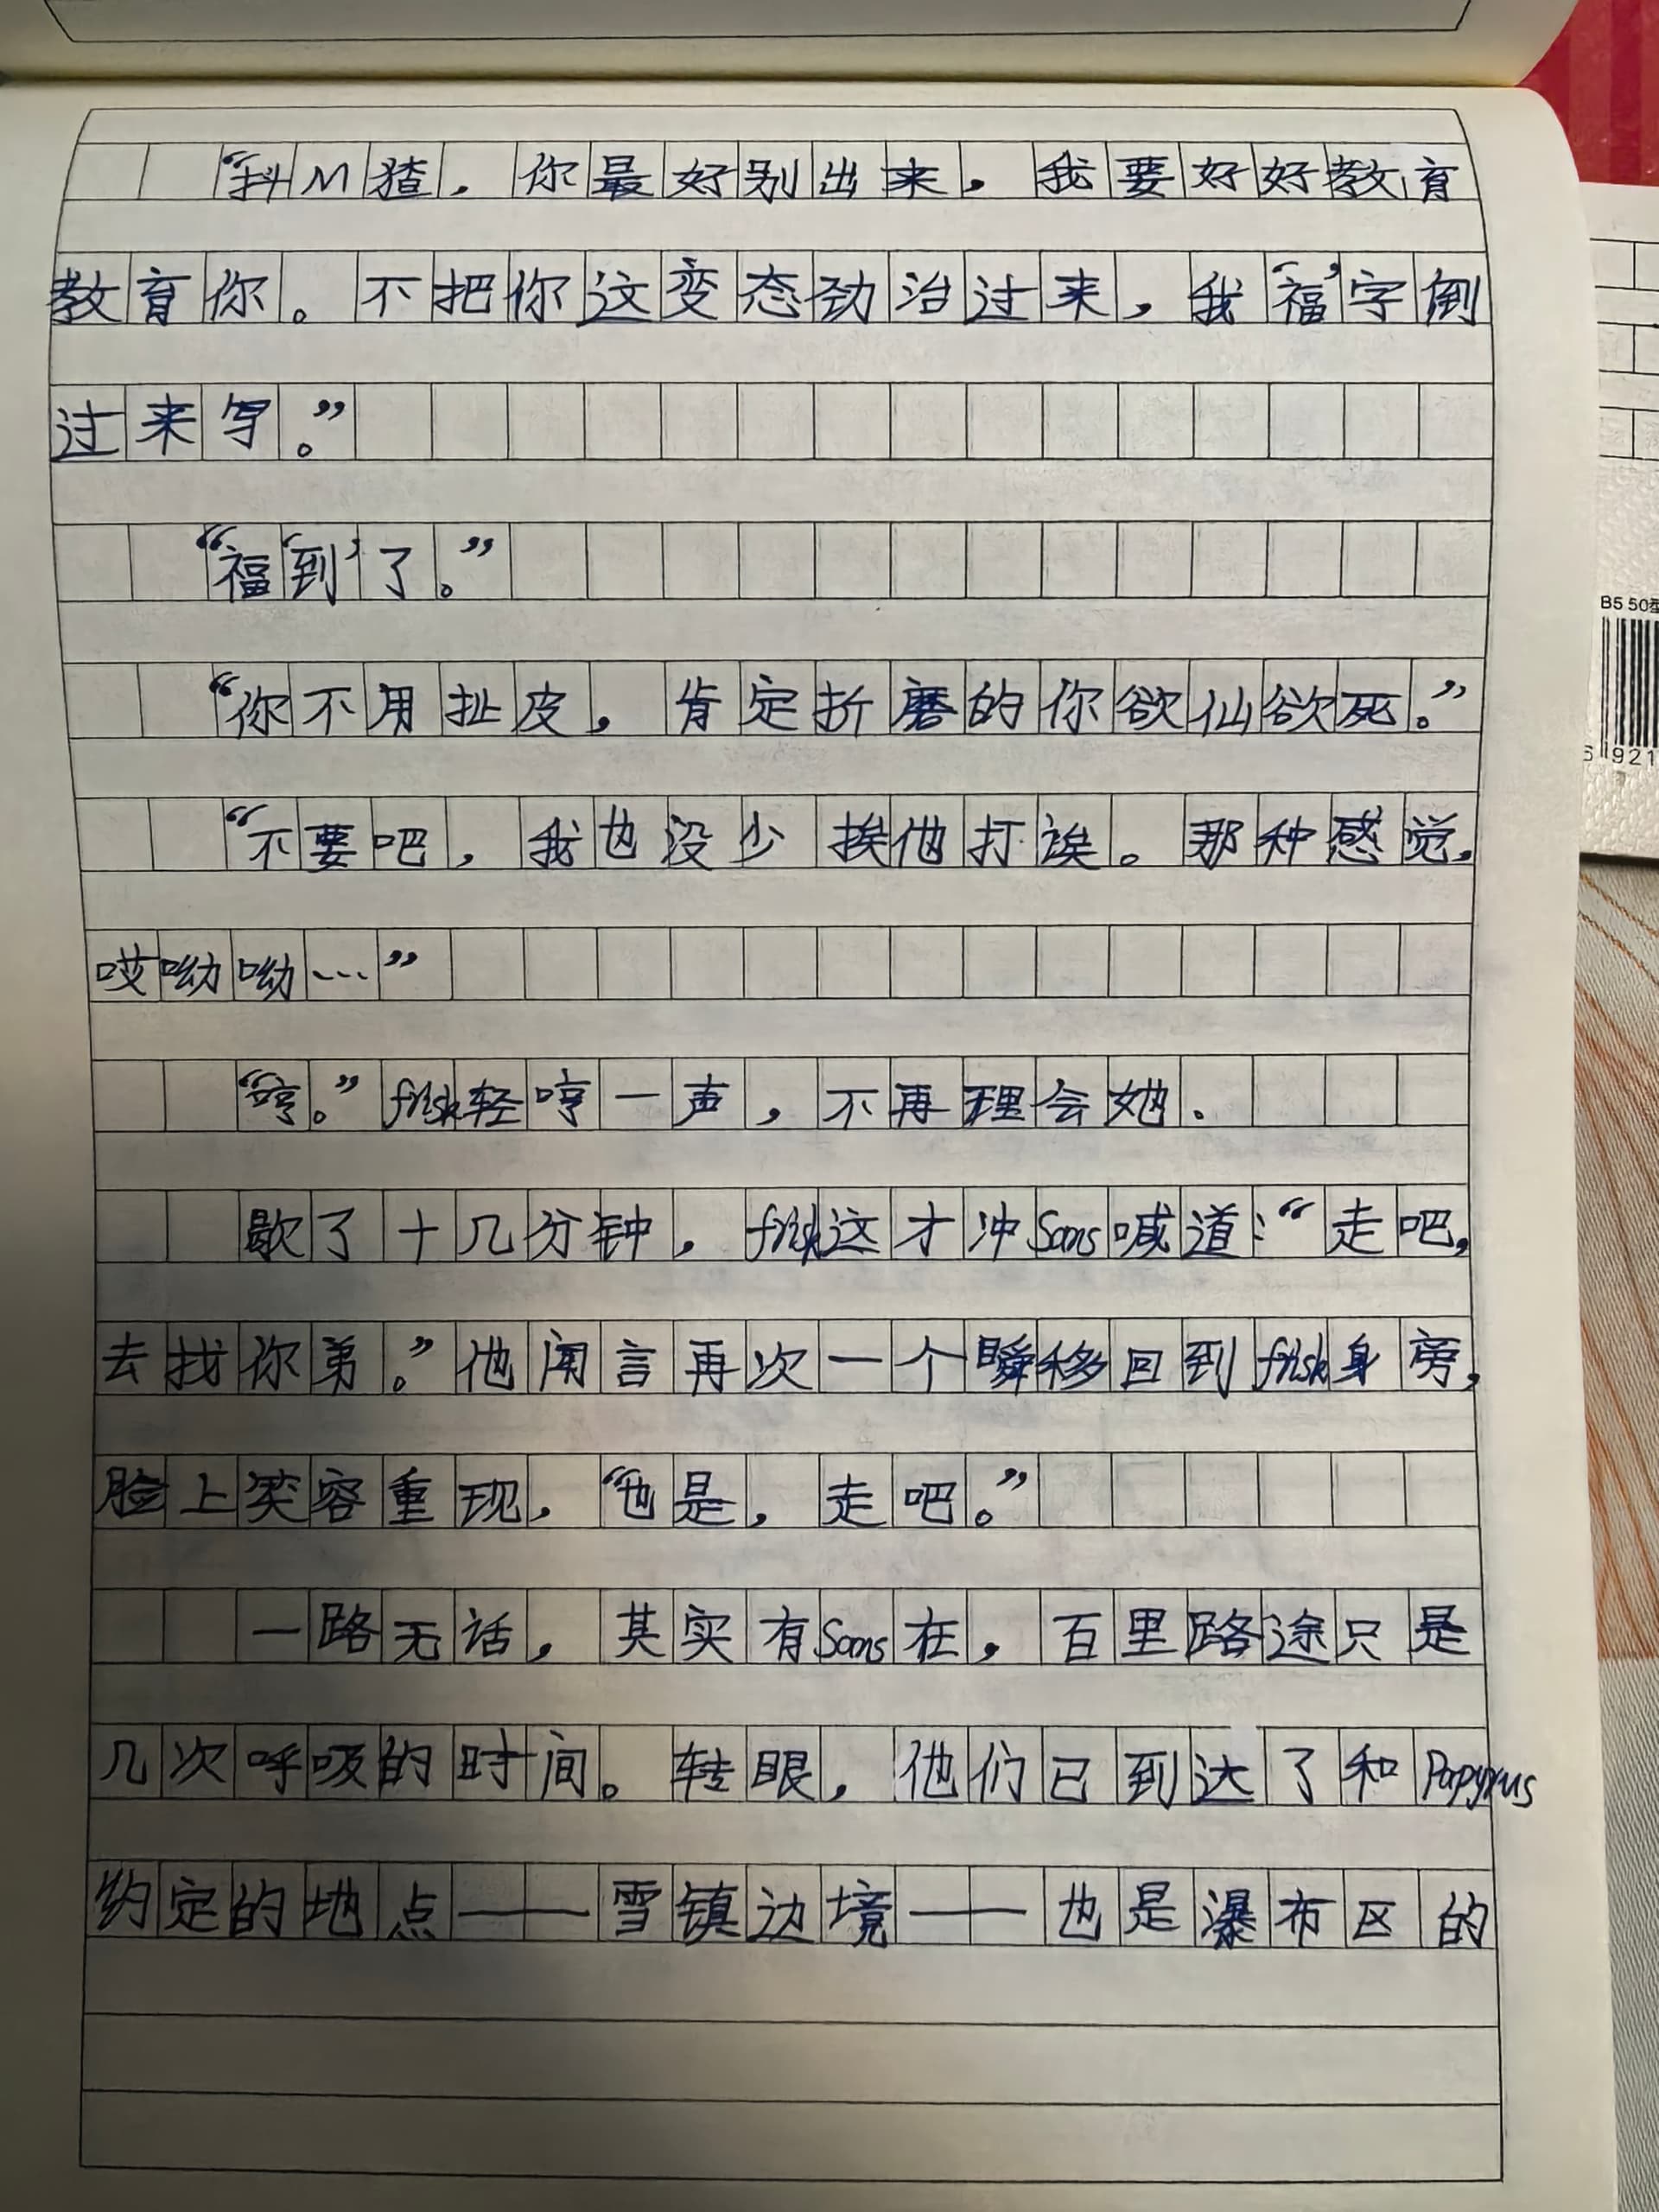 “抖M猹，你最好别出来，我要好好教育
教育你。不把你这变态劲治过来，我‘福’字倒
过来写。”
“福‘到’了。”
“你不用扯皮，肯定折磨的你欲仙欲死。”
“不要吧，我也没少挨他打诶。那种感觉，
哎呦呦…”
“哼。”frisk轻哼一声，不再理会她．
歇了十几分钟，frisk这才冲Sans喊道：“走吧，
去找你弟。”他闻言再次一个瞬移回到frisk身旁，
脸上笑容重现，“也是，走吧。”
一路无话，其实有Sans在，百里路途只是
几次呼吸的时间。转眼，他们已到达了和Papyrus
约定的地点——雪镇边境——也是瀑布区的
B5 50
6 921